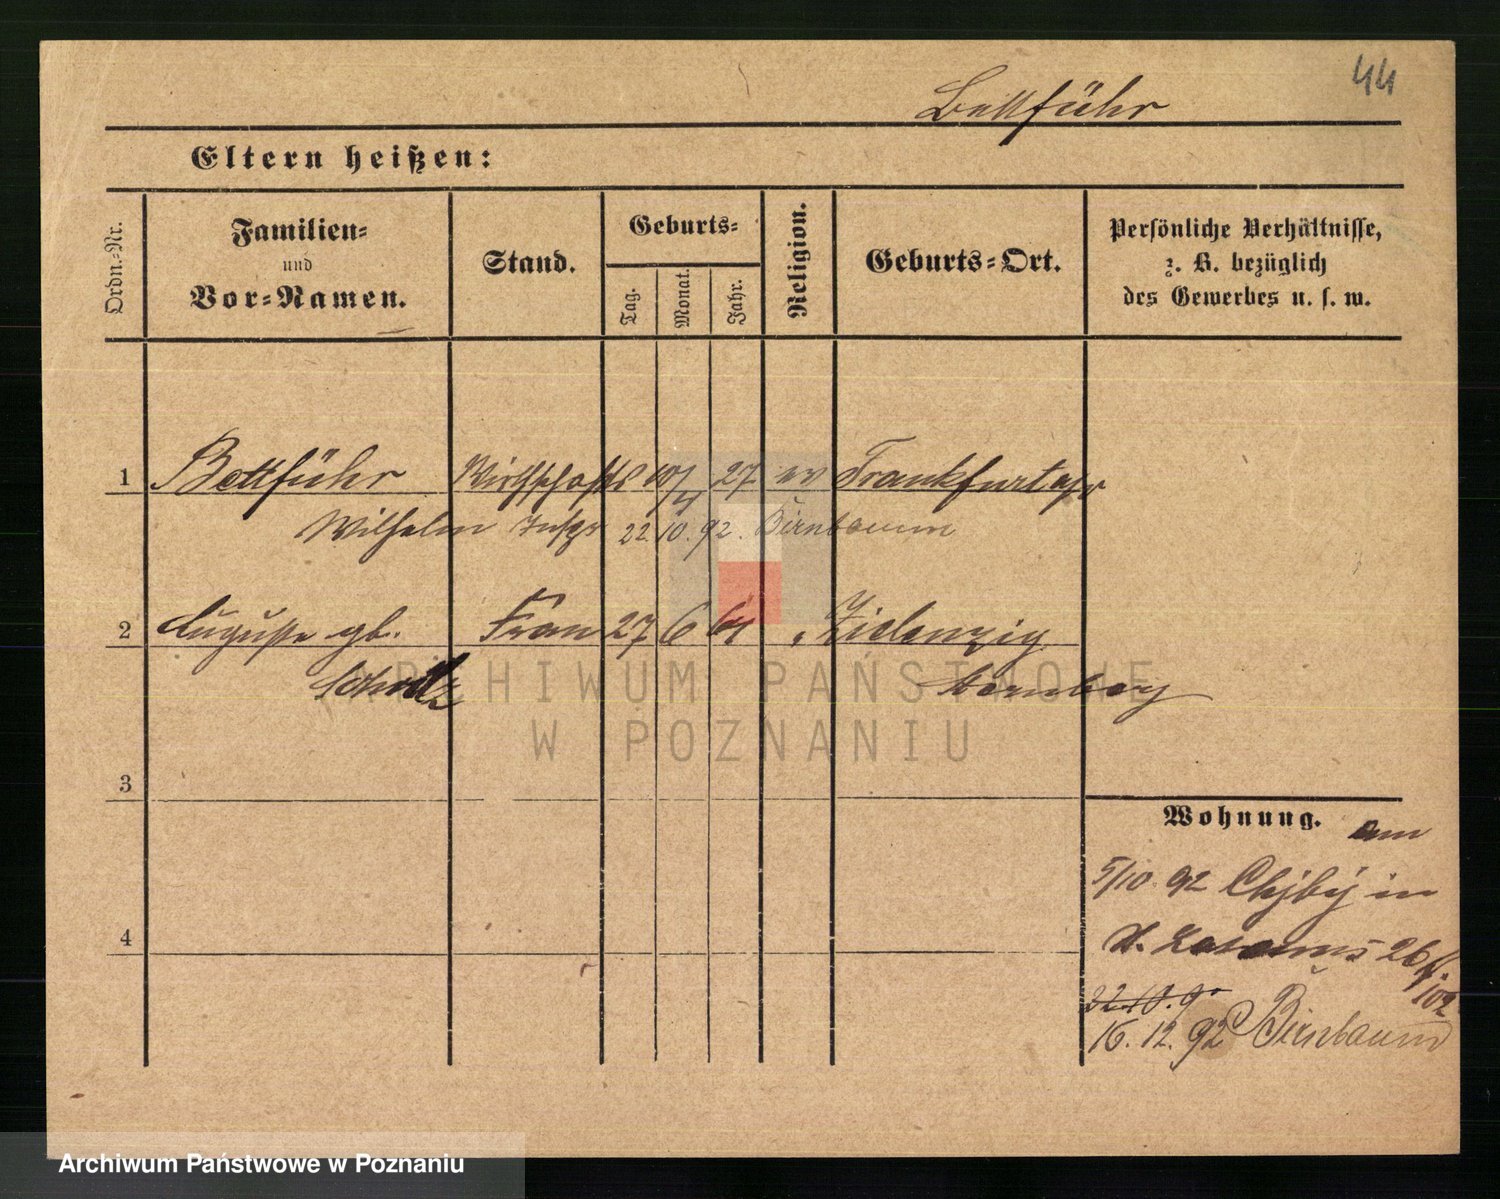 44
Bettführ
Eltern heißen:
Ordn.-Nr.
Familien-
und
Vor-Namen.
Stand.
Geburts-
Tag.
Monat.
Jahr.
Religion.
Geburts-Ort.
Persönliche Verhältnisse,
z. B. bezüglich
des Gewerbes u. s. w.
1 Bettführ Wirthschafts 10/4 27 ev Frankfurt
Wilhelm Inspr 22.10.92. Birnbaum
2 Auguste gb. Frau 27 6 Zielenzig
Scholz Sternberg
3
4
Wohnung. am
5/10.92 Chyby in
St. Lazarus 26
22.10.9
16.12.92 Birnbaum
ARCHIWUM PAŃSTWOWE
W POZNANIU
Archiwum Państwowe w Poznaniu